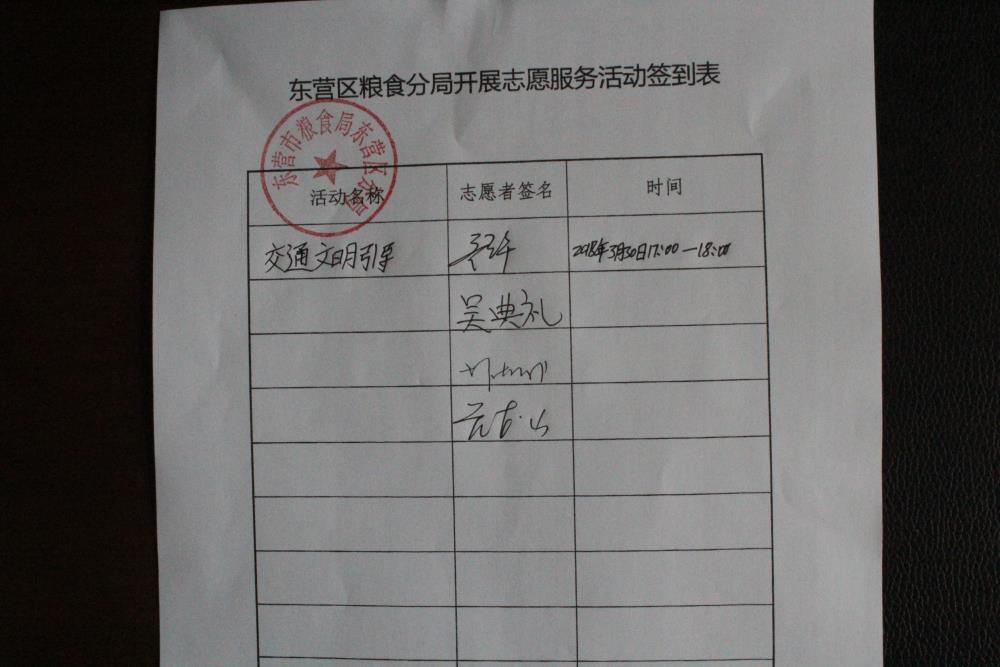 东营区粮食分局开展志愿服务活动签到表
东营市粮食局东营区分局
活动名称 志愿者签名 时间
交通文明引导 2018年3月30日17:00—18:00
吴典礼